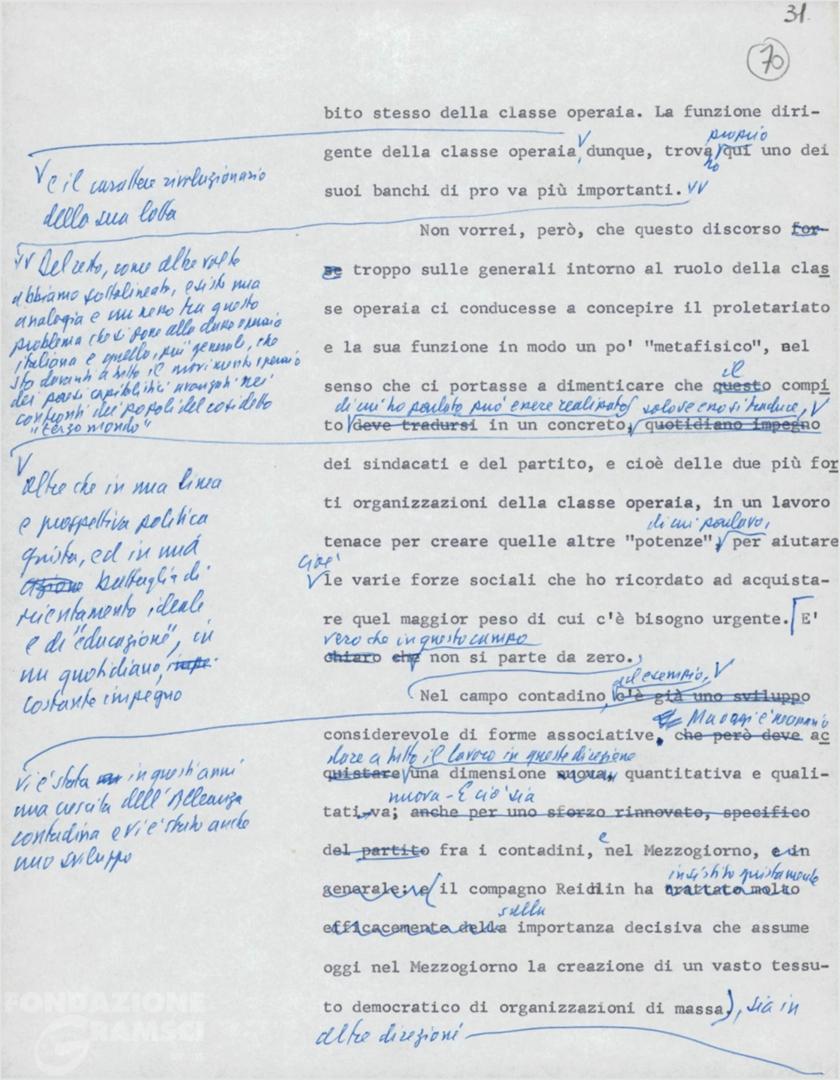 31.
70
bito stesso della classe operaia. La funzione diri-
proprio
gente della classe operaia, dunque, trova qui uno dei
no
suoi banchi di pro va più importanti. VV
V e il carattere rivoluzionario
della sua lotta
Non vorrei, però, che questo discorso for-
se troppo sulle generali intorno al ruolo della clas
se operaia ci conducesse a concepire il proletariato
e la sua funzione in modo un po' "metafisico", nel
il
senso che ci portasse a dimenticare che questo compi
di cui ho parlato può essere realizzato solo se esso si traduce, V
to deve tradursi in un concreto, quotidiano impegno
VV Del resto, come altre volte
abbiamo sottolineato, esiste una
analogia e un nesso tra questo
problema che si pone alla classe operaia
italiana e quello, più generale, che
sta davanti a tutto il movimento operaio
dei paesi capitalistici avanzati nei
confronti dei popoli del cosidetto
"terzo mondo"
dei sindacati e del partito, e cioè delle due più for
ti organizzazioni della classe operaia, in un lavoro
di cui parlavo,
tenace per creare quelle altre "potenze", per aiutare
cioè
le varie forze sociali che ho ricordato ad acquista-
re quel maggior peso di cui c'è bisogno urgente. E'
vero che in questo campo
chiaro che non si parte da zero.
V
oltre che in una linea
e prospettiva politica
giusta, ed in una
azione battaglia di
orientamento ideale
e di "educazione", in
un quotidiano, impe-
costante impegno
ad esempio, V
Nel campo contadino, c'è già uno sviluppo
Ma oggi è necessario
considerevole di forme associative, che però deve ac
dare a tutto il lavoro in queste direzione
quistare una dimensione nuova, quantitativa e quali-
nuova - E ciò sia
tativa; anche per uno sforzo rinnovato, specifico
e
del partito fra i contadini, nel Mezzogiorno, e in
insistito giustamente
generale; e il compagno Reichlin ha trattato molto
sulla
efficacemente della importanza decisiva che assume
oggi nel Mezzogiorno la creazione di un vasto tessu-
to democratico di organizzazioni di massa), sia in
altre direzioni
vi è stata in questi anni
una crescita dell'Alleanza
contadina e vi è stato anche
uno sviluppo
FONDAZIONE
GRAMSCI